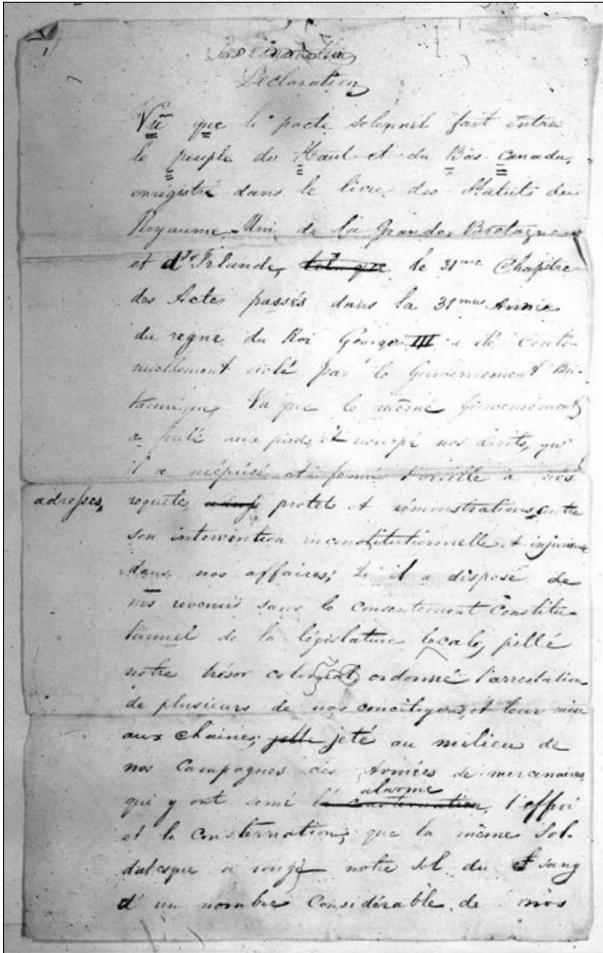 Déclaration
Vu que le pacte solennel fait entre
le peuple du Haut et du Bas Canada,
enregistré dans le livre des Statuts du
Royaume-Uni de la Grande Bretagne
et d'Irlande, le 31me Chapitre
des Actes passés dans la 31me Année
du regne du Roi George III a été conti-
nuellement violé par le Gouvernement Bri-
tannique, Vu que le même Gouvernement
a foulé aux pieds, et usurpé nos droits, qu'
il a méprisé et fermé l'oreille à nos
adresses, requêtes, protets et rémonstrations, contre
son intervention inconstitutionnelle et injurieuse
dans nos affaires; qu'il a disposé de
nos revenus sans le consentement Constitu-
tionnel de la législature locale, pillé
notre trésor colonial, ordonné l'arrestation
de plusieurs de nos concitoyens, et leur mise
aux chaines; jeté au milieu de
nos Campagnes des Armées de mercenaires
alarme
qui y ont semé l' l'effroi
et la Consternation; que la même Sol-
datesque a rougi notre sol du sang
d'un nombre Considérable de nos